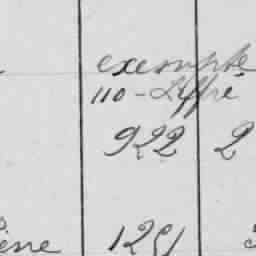 exempté
110 - Liffré
922 2
ène 1251